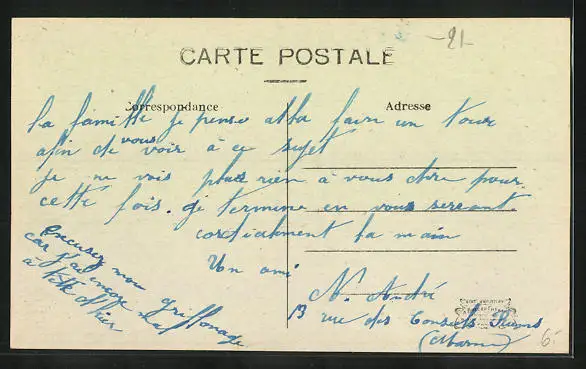 -21-
CARTE POSTALE
Correspondance
Adresse
la famille je pense allé fair un tour
afin de vous voir à ce sujet
je ne vois plus rien à vous dire pour
cette fois. je termine en vous serrant
cordialement la main
Un ami
N. André
13 rue des Consuls Reims
(Marne)
excusez mon griffonage
car j'ai encore mal
à tête d'hier
6.-